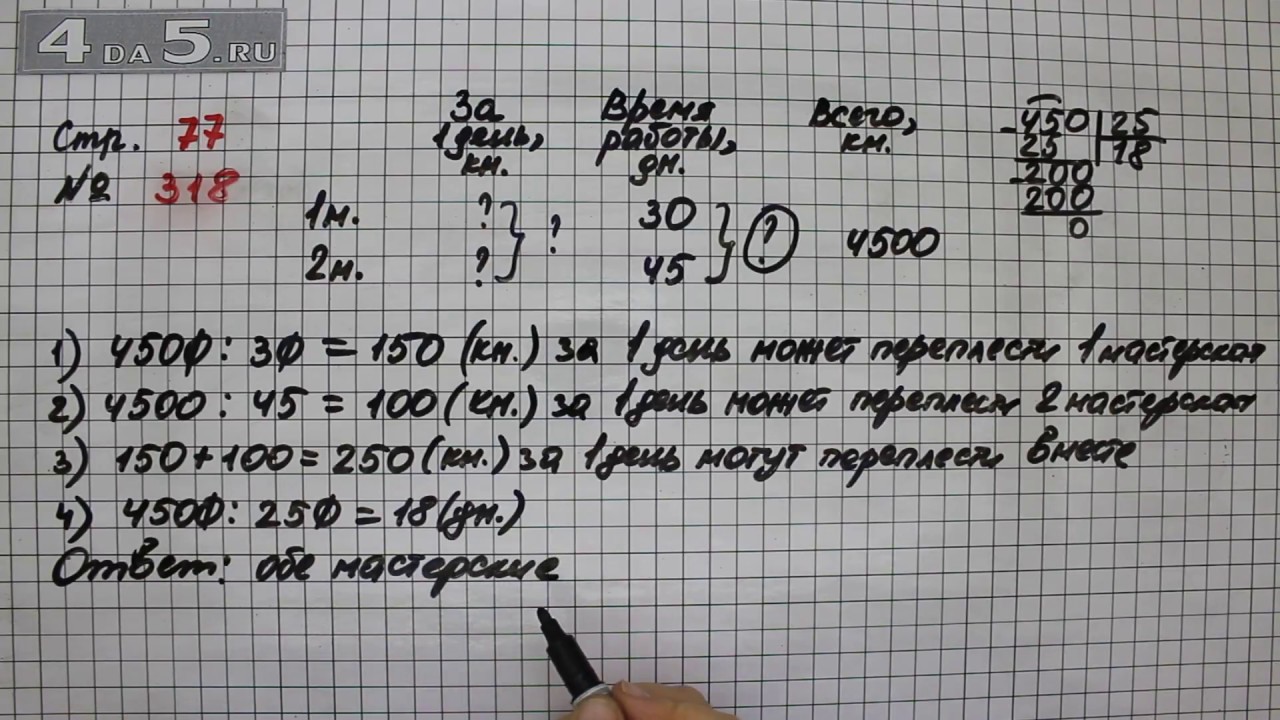 4DA5.RU
Стр. 77
№ 318
За 1 день, кн.
Время работы, дн.
Всего, кн.
1м. ? } ? 30 } ? 4500
2м. ? 45
450 | 25
- 25 | 18
- 200
200
0
1) 4500 : 30 = 150 (кн.) за 1 день может переплести 1 мастерская
2) 4500 : 45 = 100 (кн.) за 1 день может переплести 2 мастерская
3) 150 + 100 = 250 (кн.) за 1 день могут переплести вместе
4) 4500 : 250 = 18 (дн.)
Ответ: обе мастерские